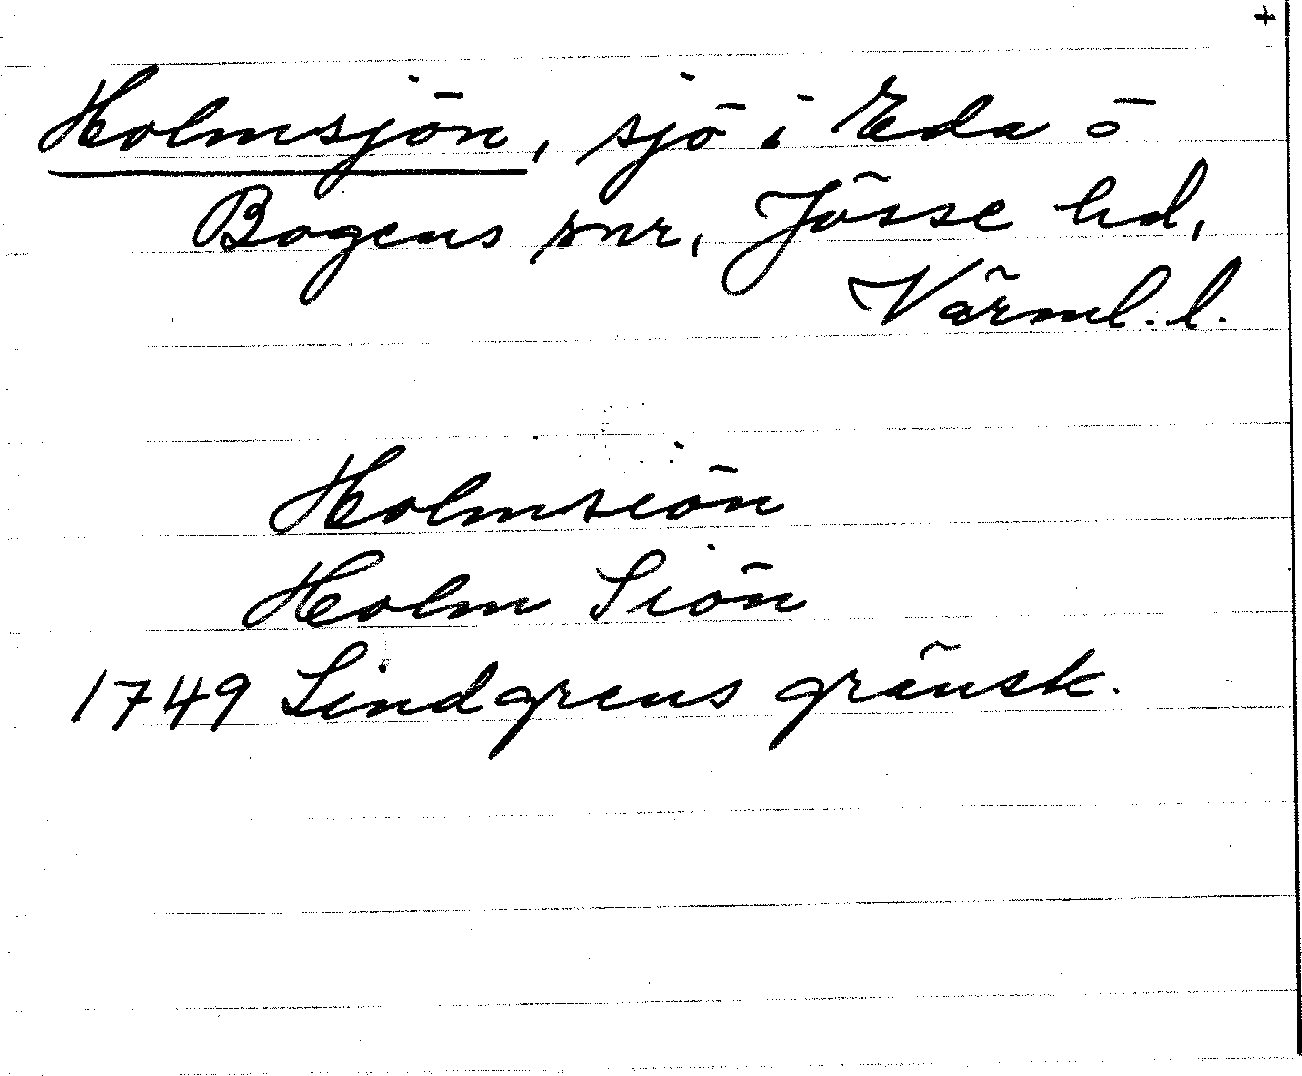 +
Holmsjön, sjö i Eda o
Bogens snr, Jösse hd,
Värml. l.
Holmsiön
Holm Siön
1749 Lindgrens gränsk.